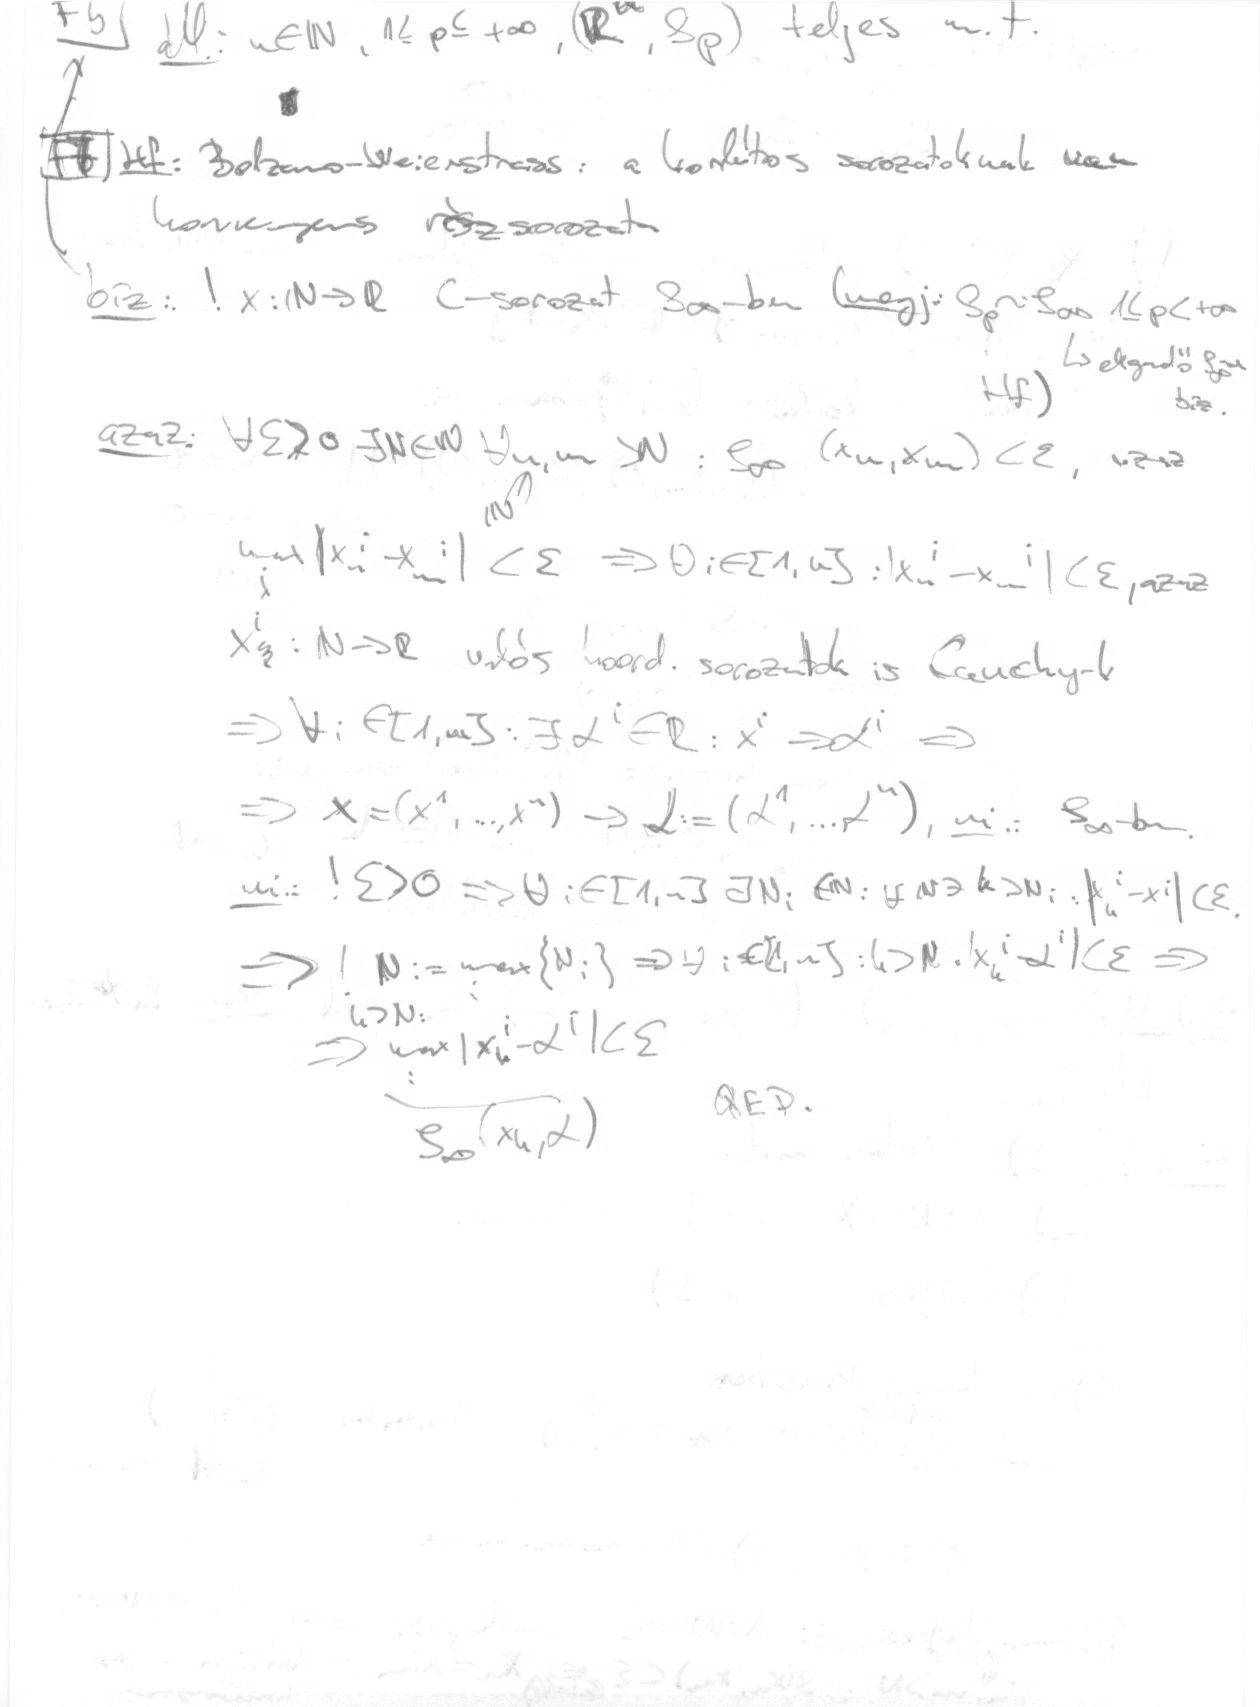 F5) áll.: n∈ℕ, 1≤p≤+∞, (ℝⁿ, ϱ_p) teljes m.t.
Hf: Bolzano-Weierstrass: a korlátos sorozatoknak van
konvergens részsorozata
biz.: ! x:ℕ→ℝ C-sorozat ϱ_∞-ben (megj: ϱ_p~ϱ_∞ 1≤p<+∞
↳ elegendő
Hf) biz.
azaz: ∀ε>0 ∃N∈ℕ ∀n,m >N : ϱ_∞ (x_n,x_m) <ε, azaz
ℕ
max_i |x_n^i - x_m^i| <ε ⇒ ∀i∈[1,n] : |x_n^i - x_m^i| <ε, azaz
x^i : ℕ→ℝ valós koord. sorozatok is Cauchy-k
⇒ ∀i ∈[1,n] : ∃ α^i ∈ℝ : x^i → α^i ⇒
⇒ x=(x^1, ..., x^n) → α:=(α^1, ..., α^n), ui.: ϱ_∞-ben.
ui.: ! ε>0 ⇒ ∀i∈[1,n] ∃N_i ∈ℕ: ∀ ℕ∋k>N_i : |x_k^i - x^i| <ε.
⇒ ! N:= max_i {N_i} ⇒ ∀i∈[1,n] : k>N : |x_k^i - α^i| <ε ⇒
k>N:
⇒ max_i |x_k^i - α^i| <ε
ϱ_∞(x_k,α) QED.